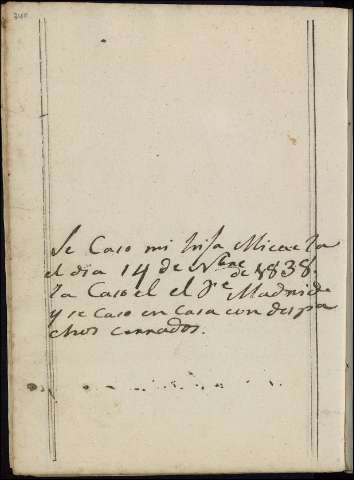 340
Se Caso mi hija Micaela
el dia 14 de Nbre de 1838.
la Caso el el Sr Madrid
y se caso en casa con despa
chos cerrados.